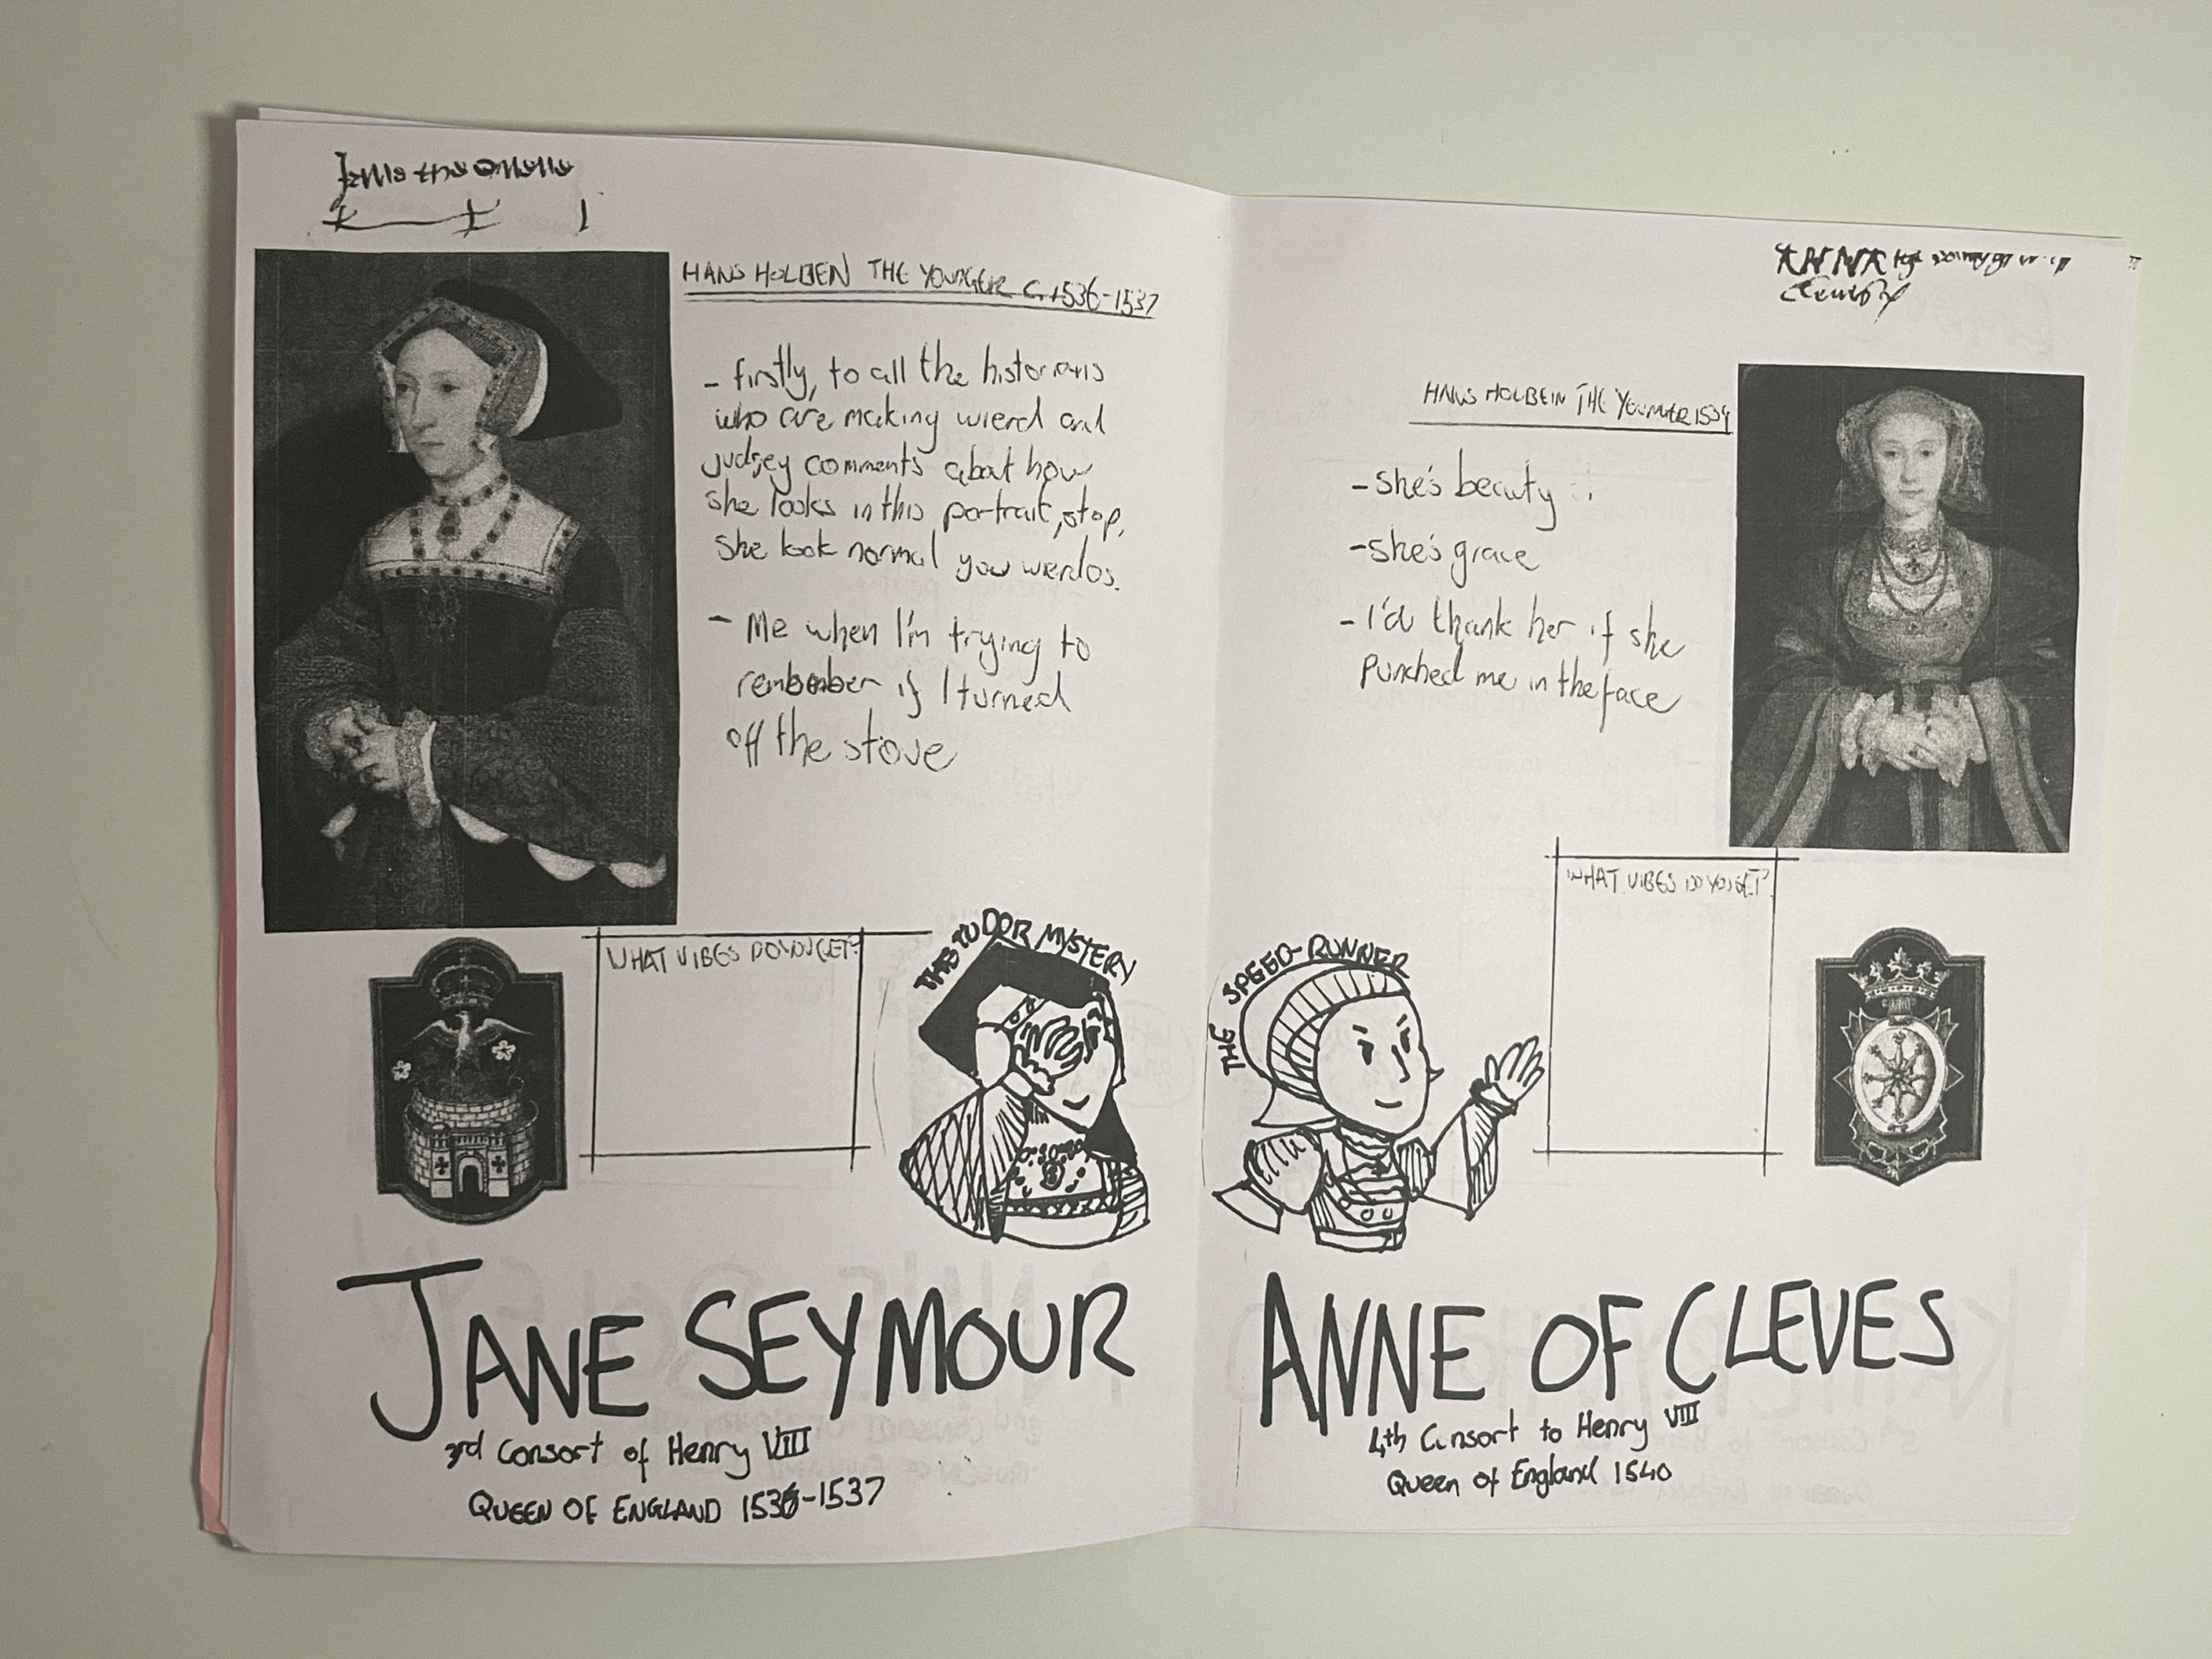 Jane the Quene
HANS HOLBEN THE YOUNGER C. 1536-1537
- firstly, to all the historians
who are making wierd and
judgey comments about how
she looks in this portrait, stop,
she look normal you weirdos.
- Me when I'm trying to
remember if I turned
off the stove
WHAT VIBES DO YOU GET?
THE TUDOR MYSTERY
JANE SEYMOUR
3rd Consort of Henry VIII
QUEEN OF ENGLAND 1536-1537
ANNA
HANS HOLBEIN THE YOUNGER 1539
- she's beauty
- she's grace
- I'd thank her if she
punched me in the face
WHAT VIBES DO YOU GET?
THE SPEED-RUNNER
ANNE OF CLEVES
4th Consort to Henry VIII
Queen of England 1540